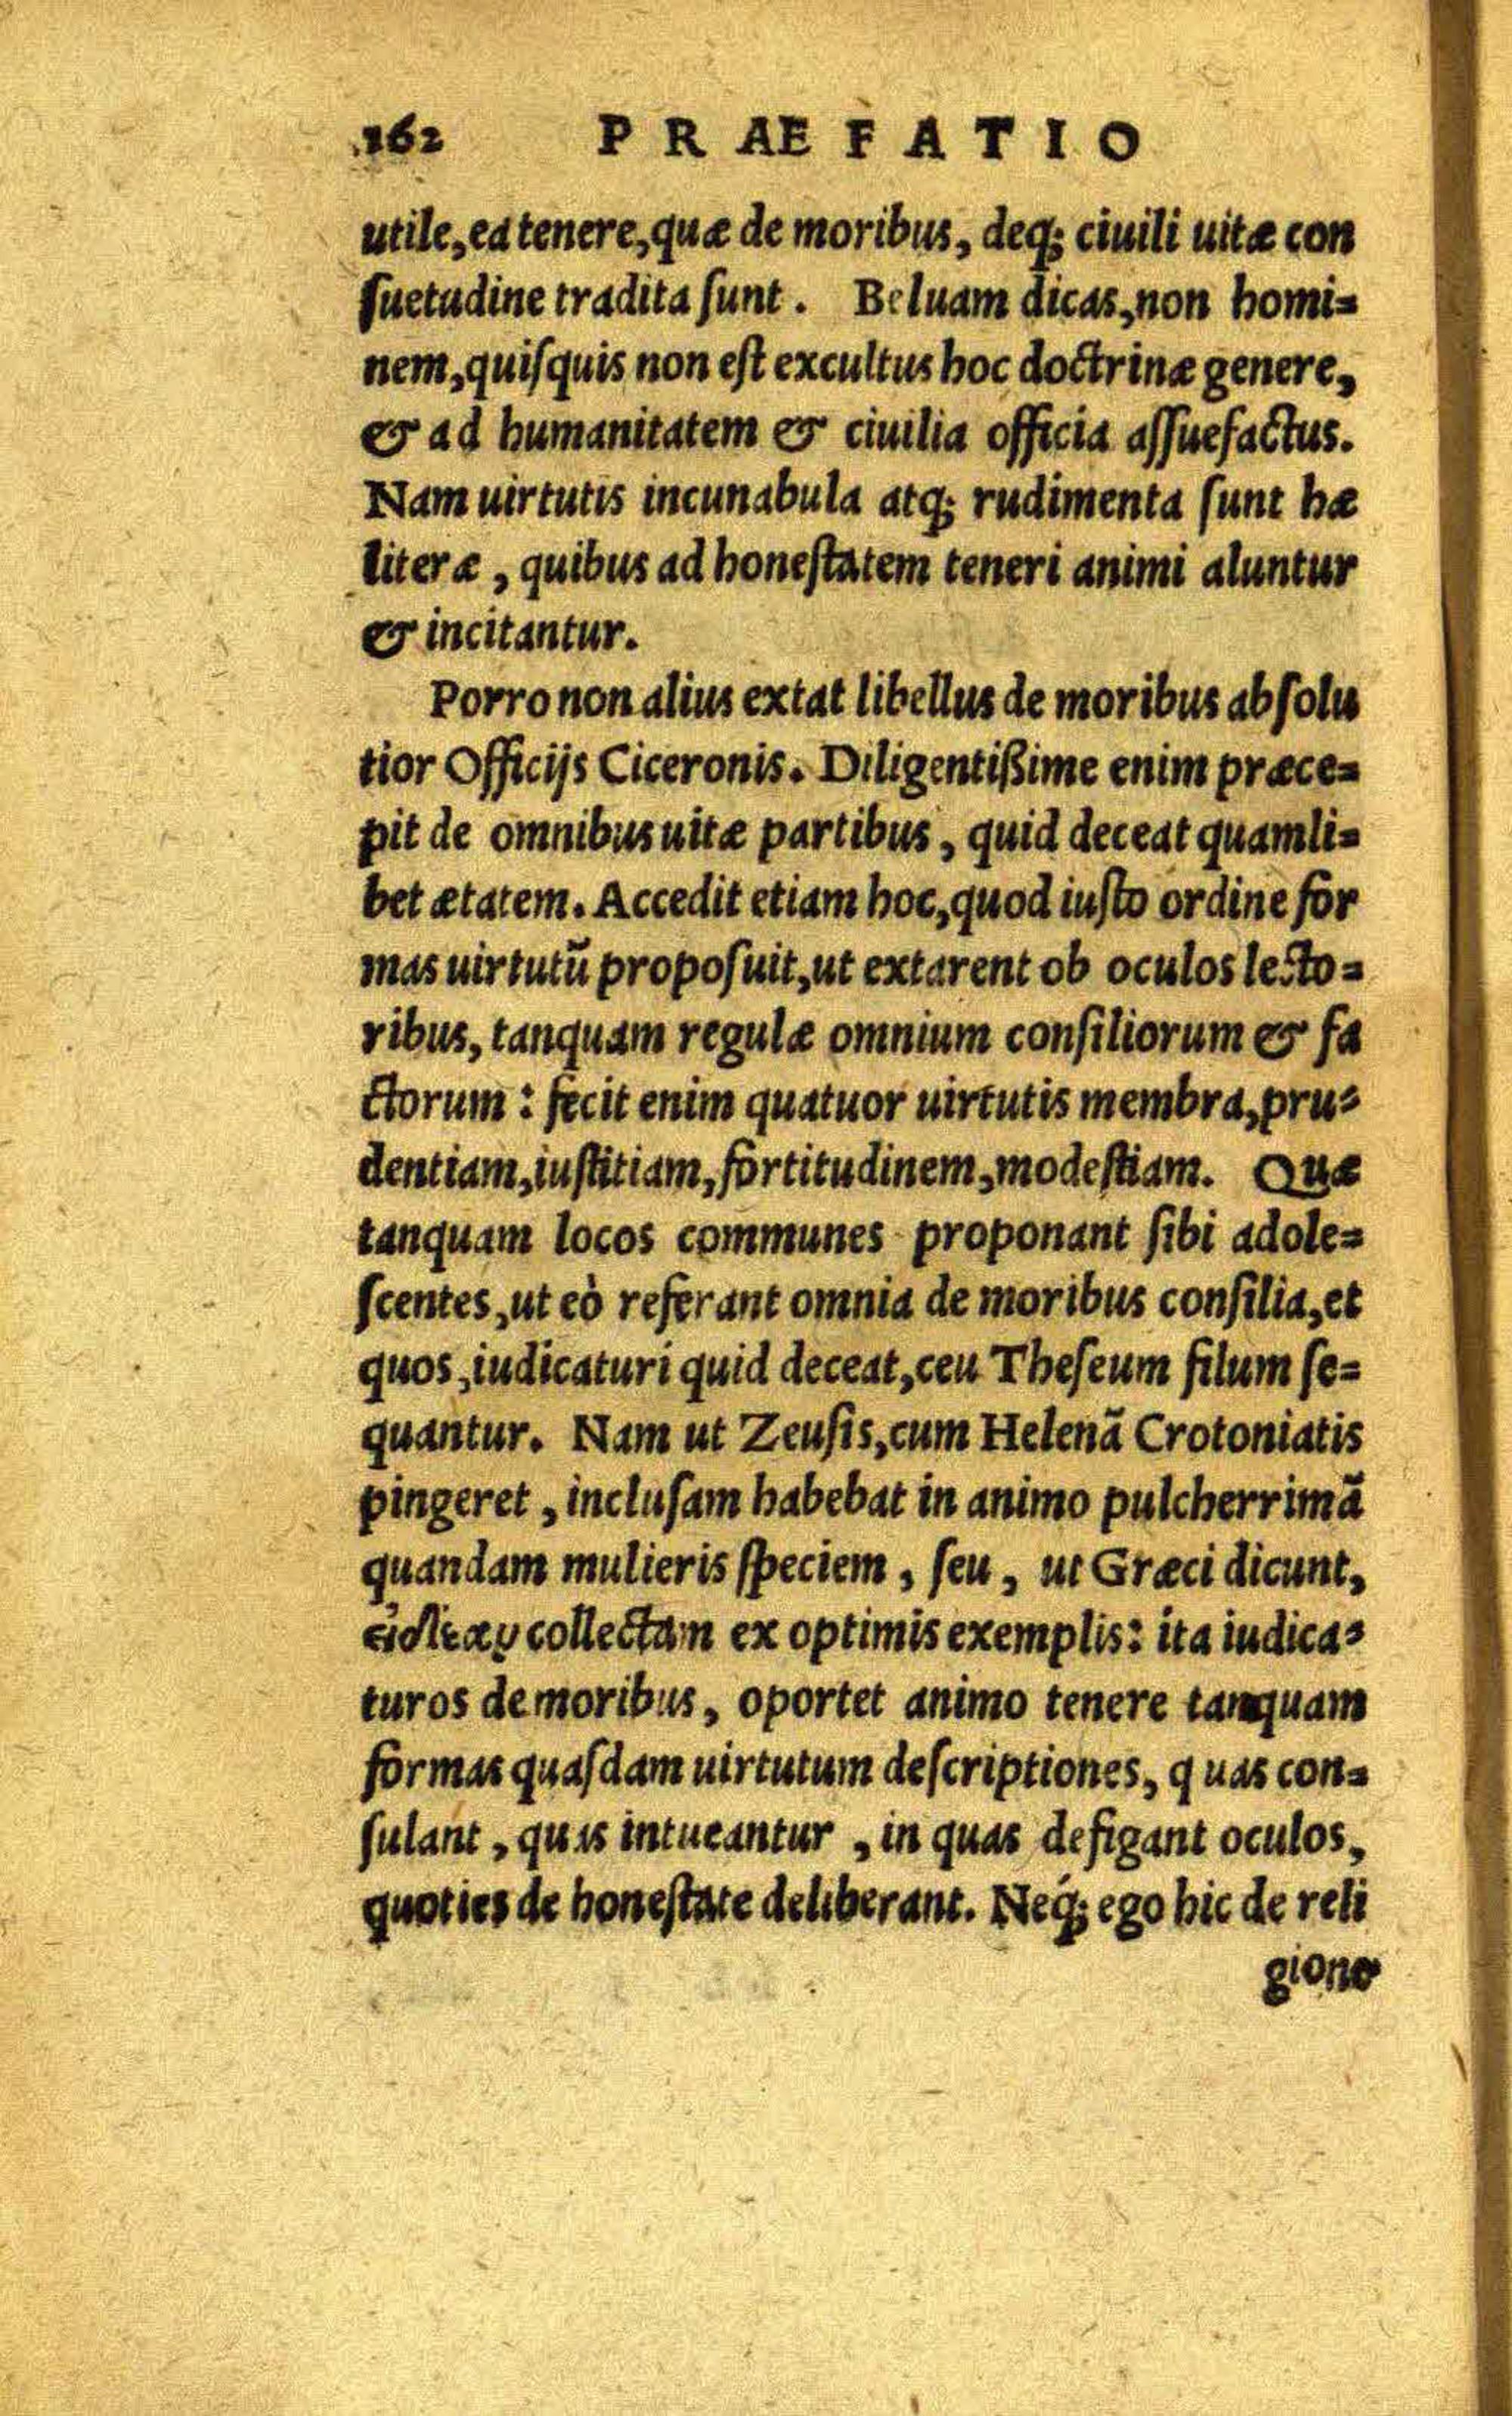 162 PRAEFATIO
utile, ea tenere, quæ de moribus, deq́; ciuili uitæ con
ſuetudine tradita ſunt. Beluam dicas, non homi=
nem, quiſquis non eſt excultus hoc doctrinæ genere,
& ad humanitatem & ciuilia officia aſſuefactus.
Nam uirtutis incunabula atq; rudimenta ſunt hæ
literæ, quibus ad honeſtatem teneri animi aluntur
& incitantur.
Porro non alius extat libellus de moribus abſolu
tior Officijs Ciceronis. Diligentißime enim præce=
pit de omnibus uitæ partibus, quid deceat quamli=
bet ætatem. Accedit etiam hoc, quod iuſto ordine for
mas uirtutũ propoſuit, ut extarent ob oculos lecto=
ribus, tanquam regulæ omnium conſiliorum & fa
ctorum: fecit enim quatuor uirtutis membra, pru=
dentiam, iuſtitiam, fortitudinem, modeſtiam. Quæ
tanquam locos communes proponant ſibi adole=
ſcentes, ut eò referant omnia de moribus conſilia, et
quos, iudicaturi quid deceat, ceu Theſeum filum ſe=
quantur. Nam ut Zeuſis, cum Helenã Crotoniatis
pingeret, incluſam habebat in animo pulcherrimã
quandam mulieris ſpeciem, ſeu, ut Græci dicunt,
collectam ex optimis exemplis: ita iudica=
turos de moribus, oportet animo tenere tanquam
formas quaſdam uirtutum deſcriptiones, quas con=
ſulant, quas intueantur, in quas defigant oculos,
quoties de honeſtate deliberant. Neq́; ego hic de reli
gione